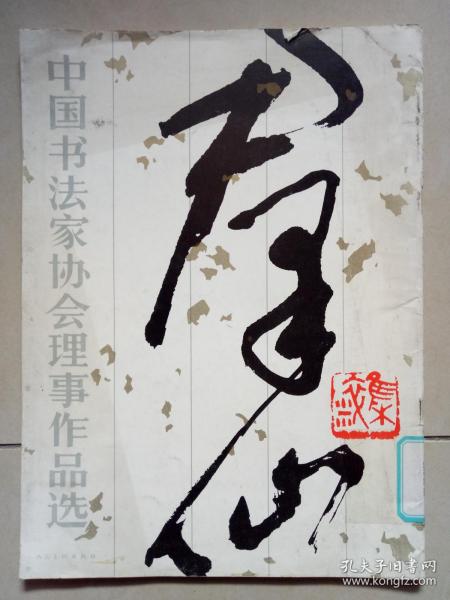 中国书法家协会理事作品选
羣仙
孔夫子旧书网
www.kongfz.com